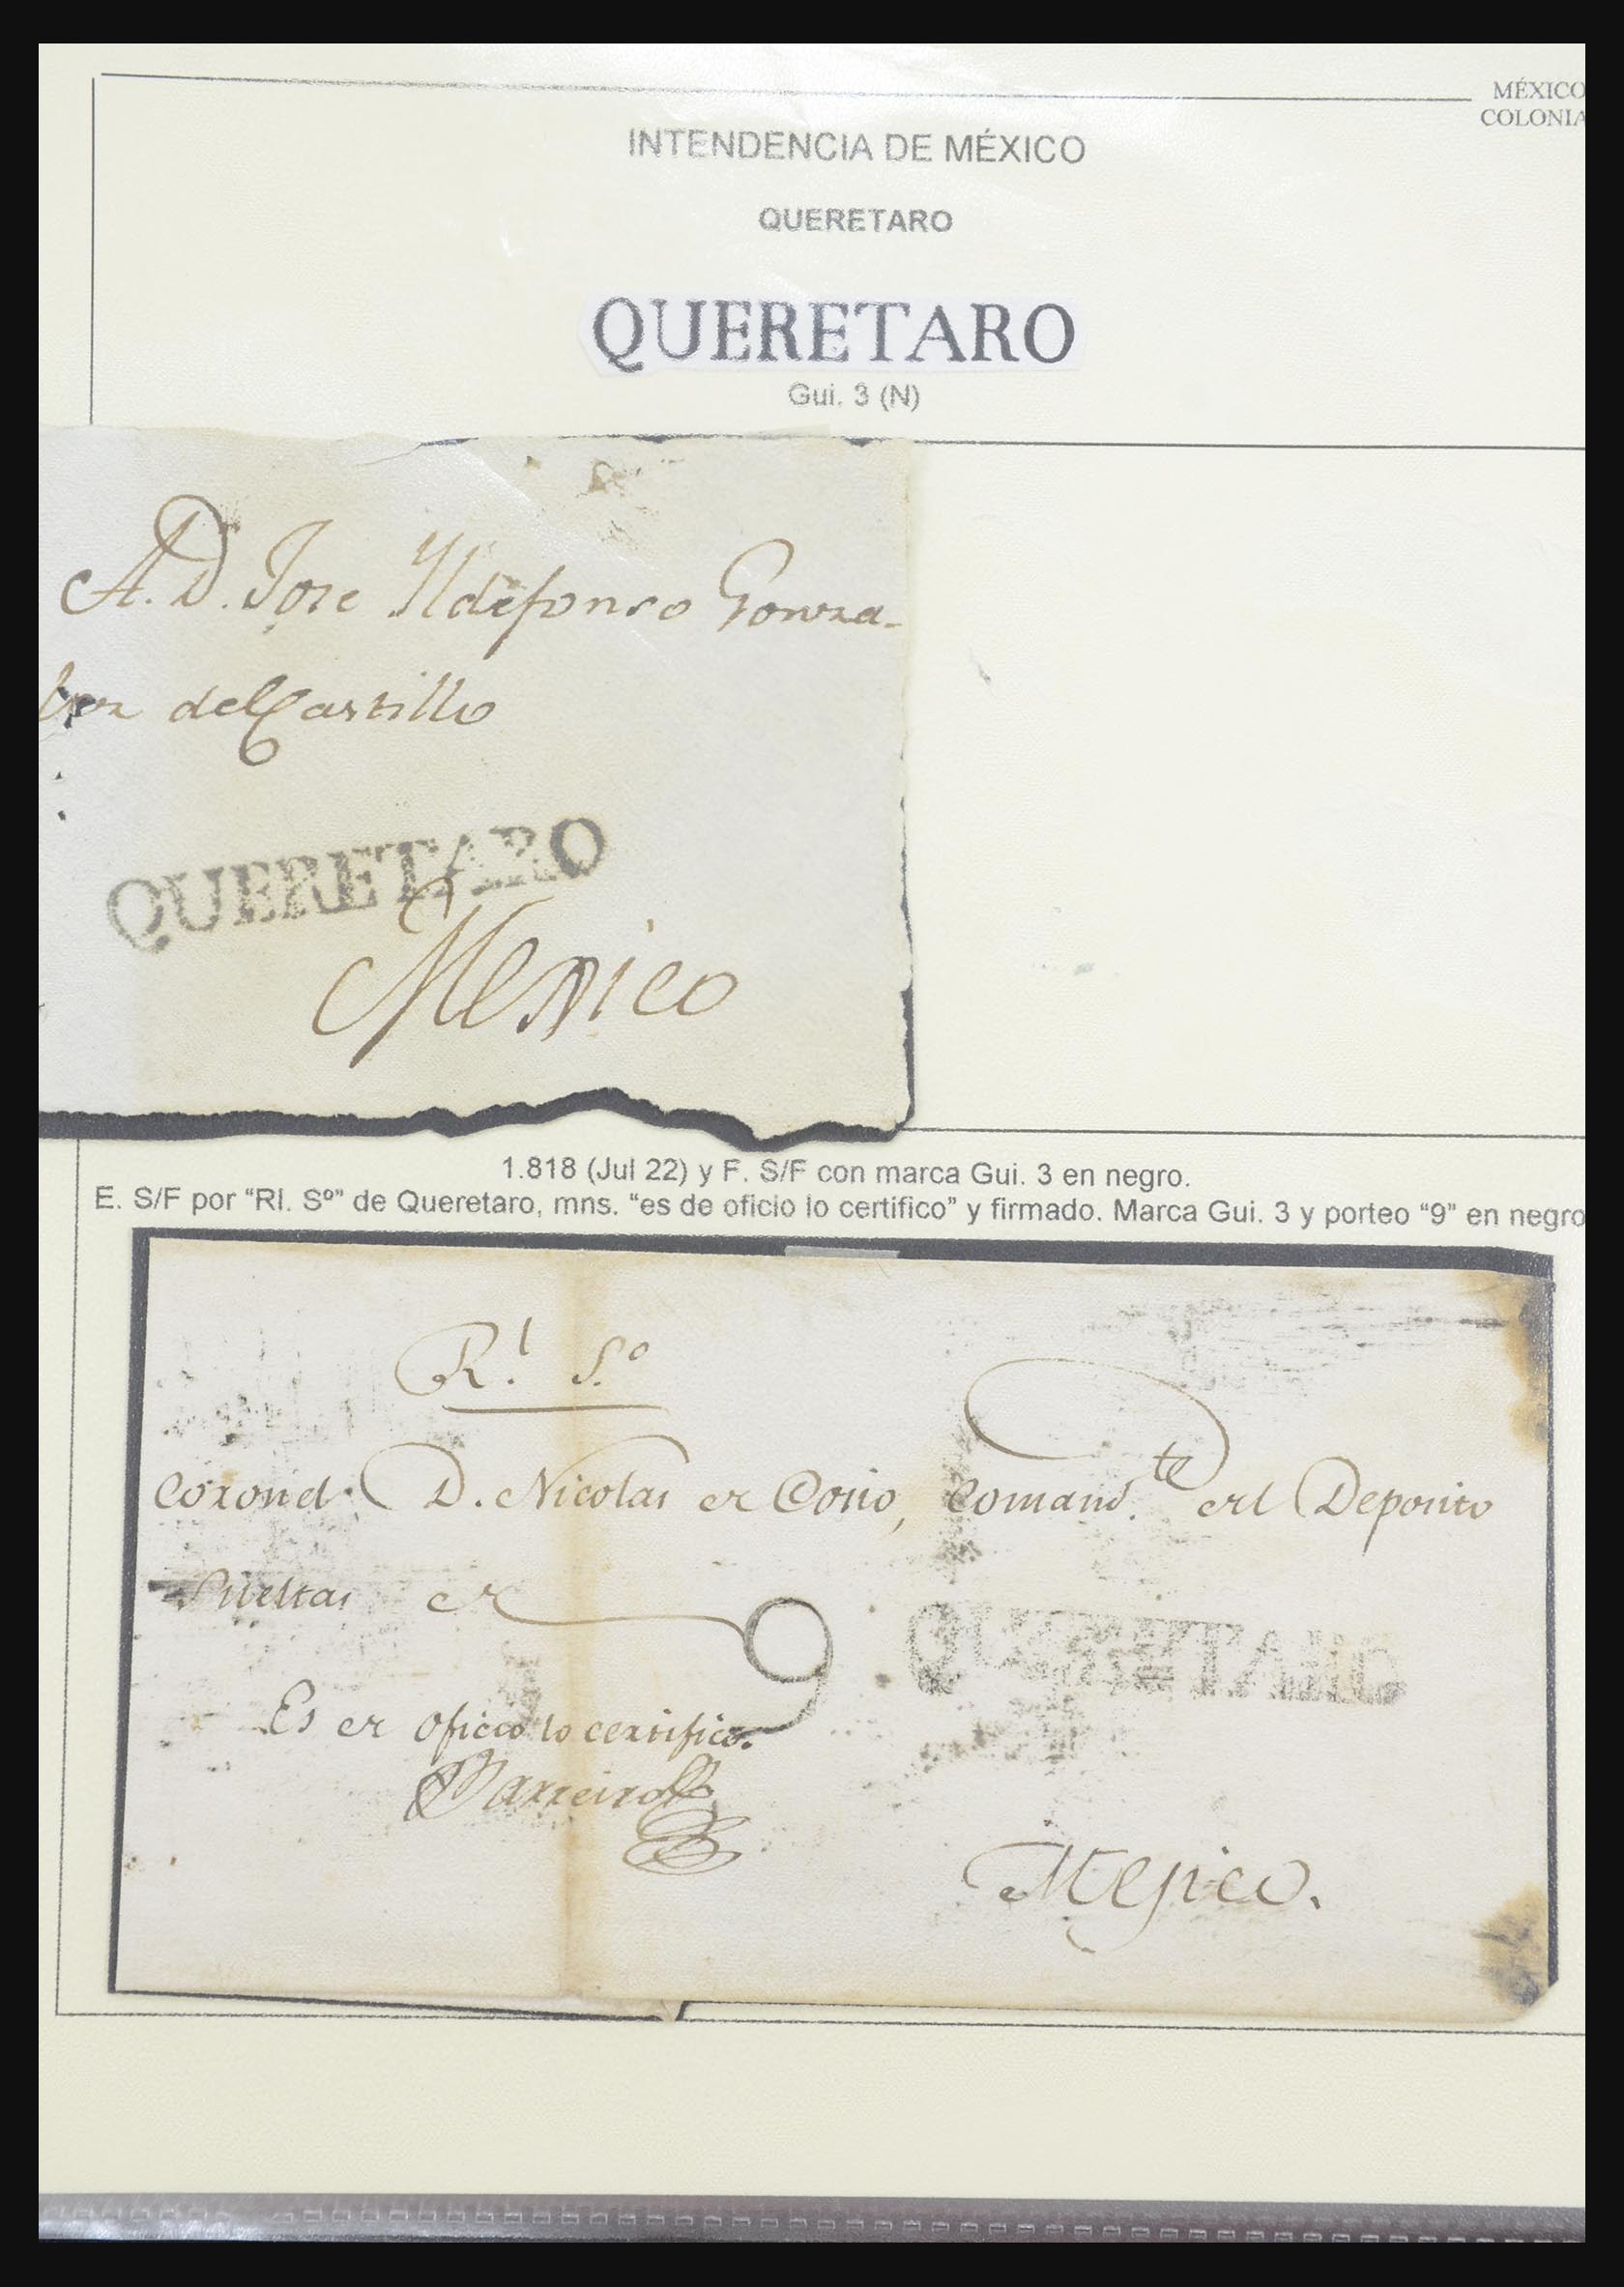 MÉXICO
COLONIA
INTENDENCIA DE MÉXICO
QUERETARO
QUERETARO
Gui. 3 (N)
A. D. Jose Yldefonso Gonza-
lez del Castillo
QUERETARO
Mexico
1.818 (Jul 22) y F. S/F con marca Gui. 3 en negro.
E. S/F por “Rl. Sº” de Queretaro, mns. “es de oficio lo certifico” y firmado. Marca Gui. 3 y porteo “9” en negro
R.l S.o
Coronel D. Nicolas de Cosio, Comand.te del Deposito
Sueltas de
9
QUERETARO
Es de oficio lo certifico.
Barreiro
Mejico.